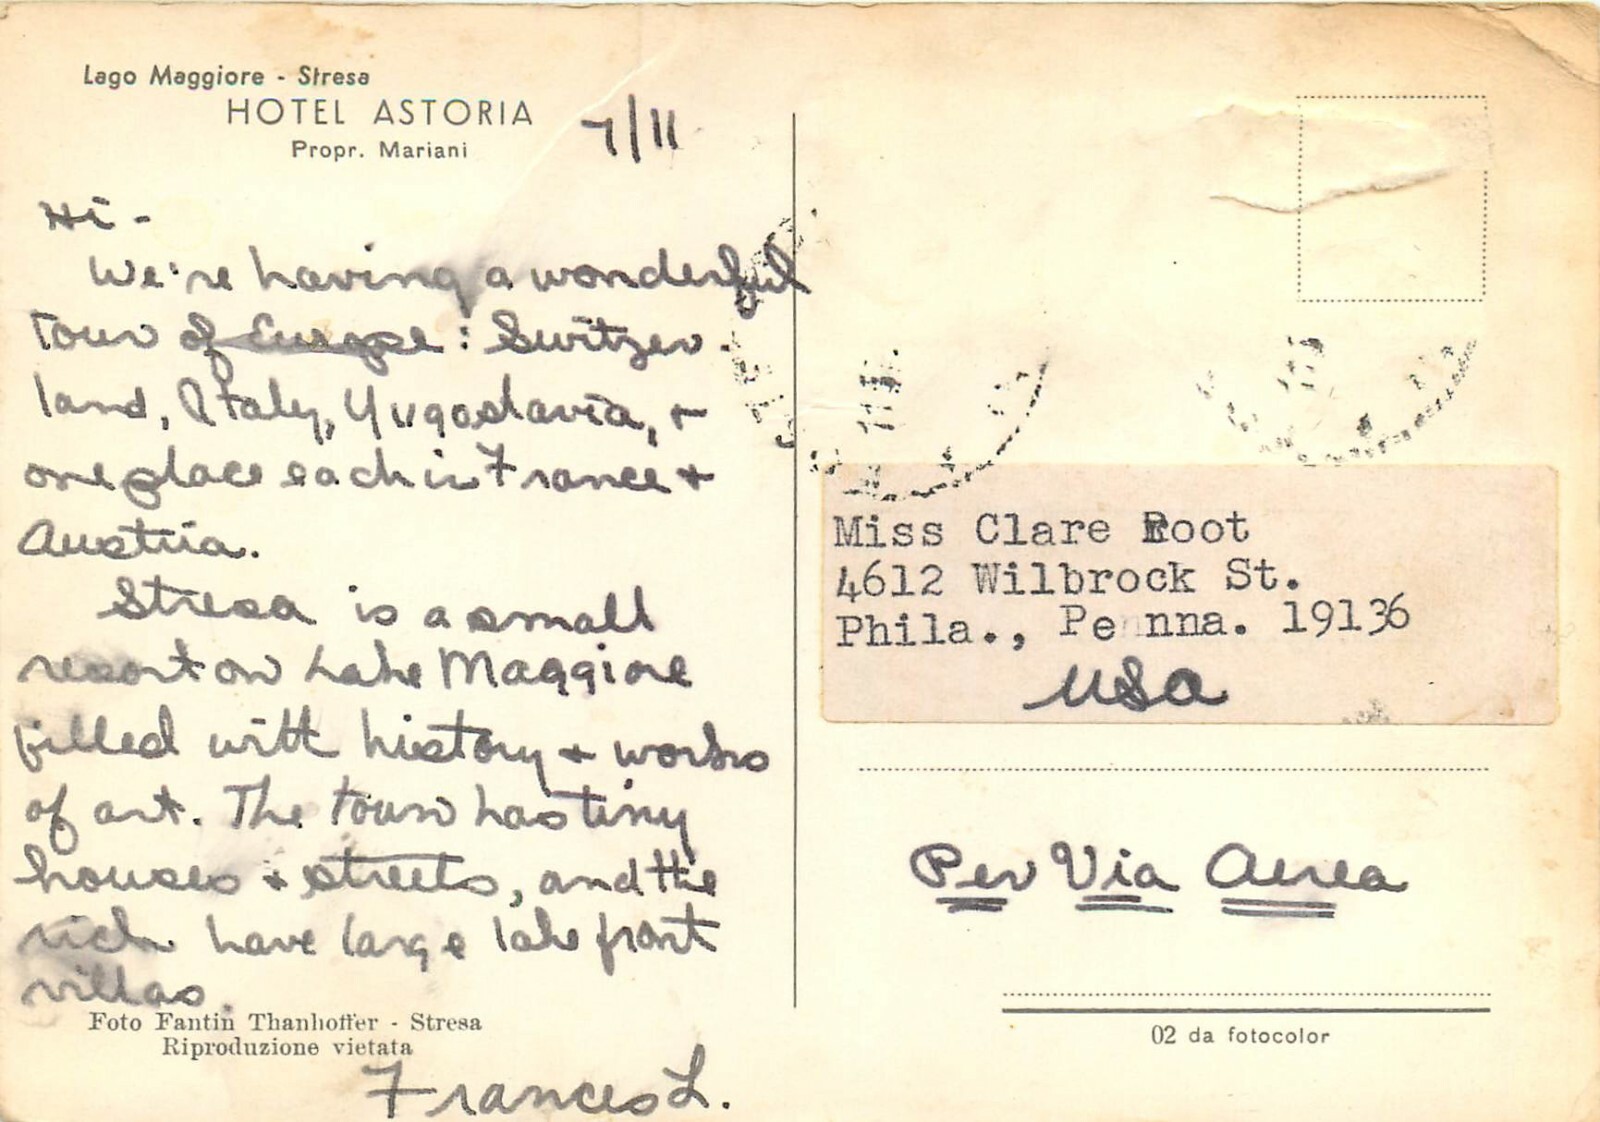 Lago Maggiore - Stresa
HOTEL ASTORIA
Propr. Mariani
7/11
Hi -
We're having a wonderful
tour of Europe: Switzer-
land, Italy, Yugoslavia, +
one place each in France +
Austria.
Stresa is a small
resort on Lake Maggiore
filled with history + works
of art. The town has tiny
houses + streets, and the
rich have large lake front
villas.
Foto Fantin Thanhoffer - Stresa
Riproduzione vietata
Frances L.
Miss Clare Root
4612 Wilbrock St.
Phila., Penna. 19136
USA
Per Via Aerea
02 da fotocolor